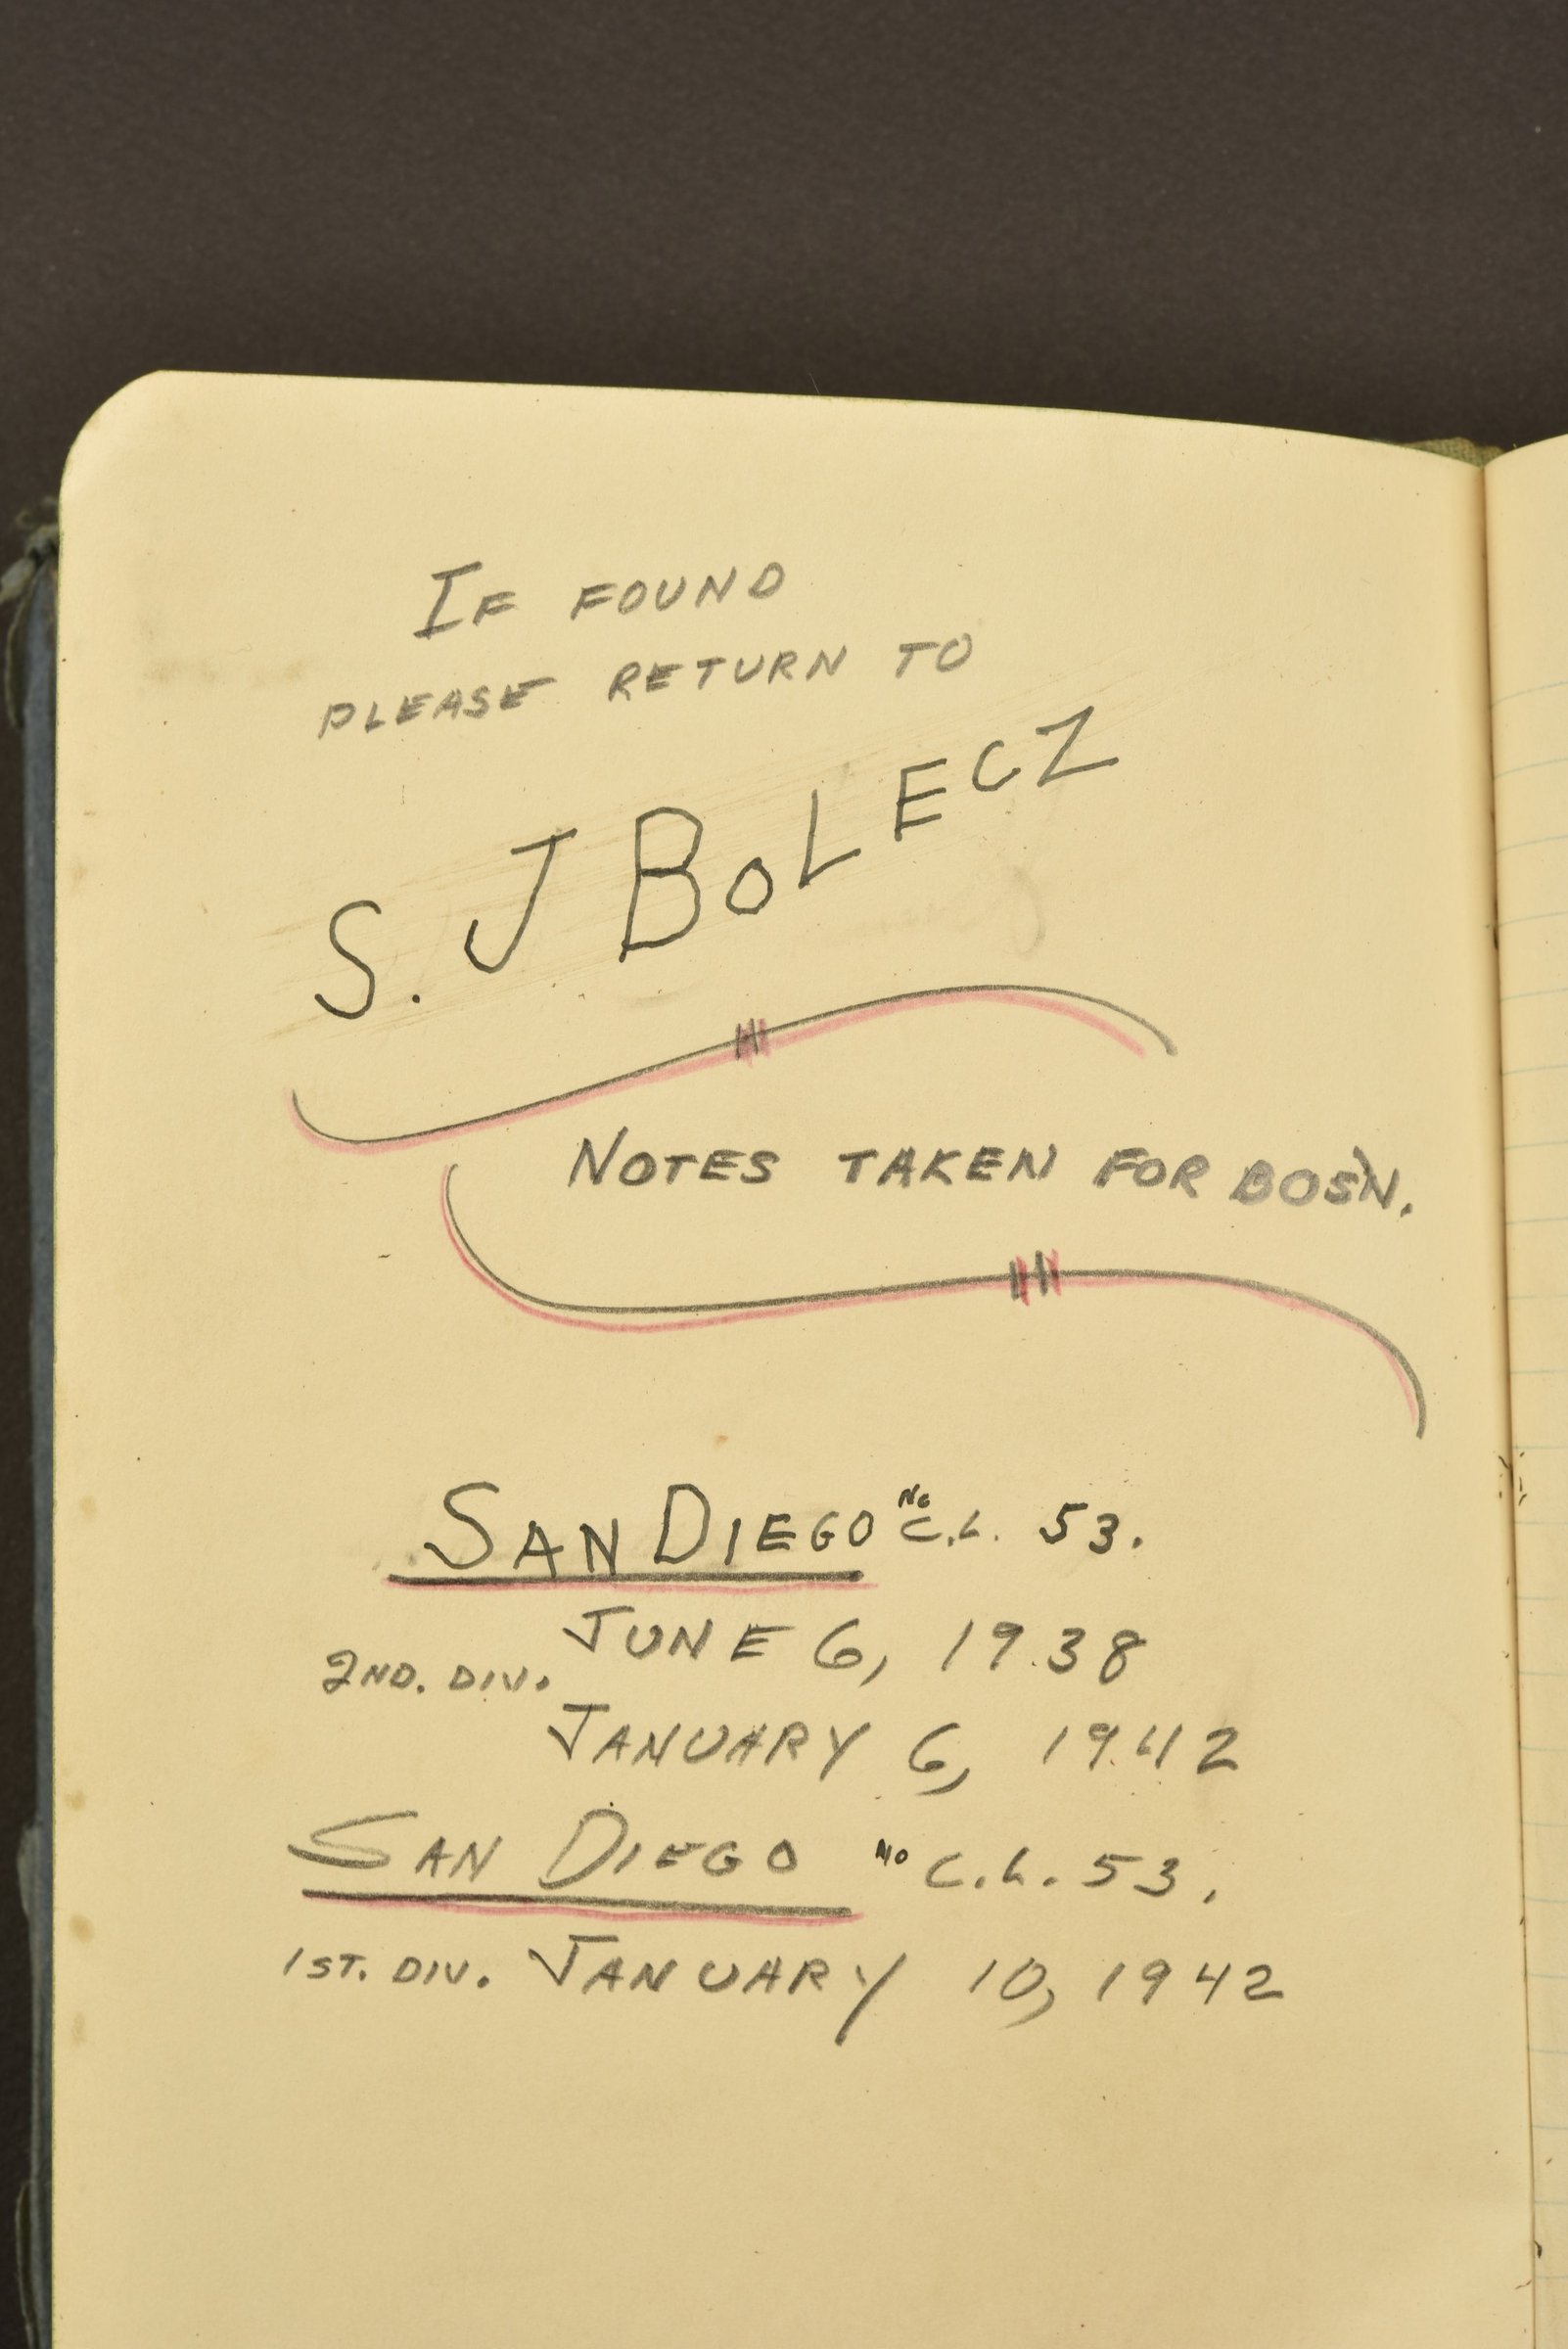 IF FOUND
PLEASE RETURN TO
S. J BOLECZ
NOTES TAKEN FOR BOS'N.
SAN DIEGO No C.L. 53.
JUNE 6, 1938
2ND. DIV.
JANUARY 6, 1942
SAN DIEGO No C.L. 53.
1ST. DIV. JANUARY 10, 1942